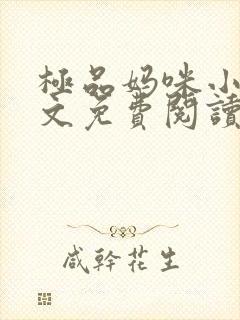 極品妈咪小
文免費閱讀
咸幹花生